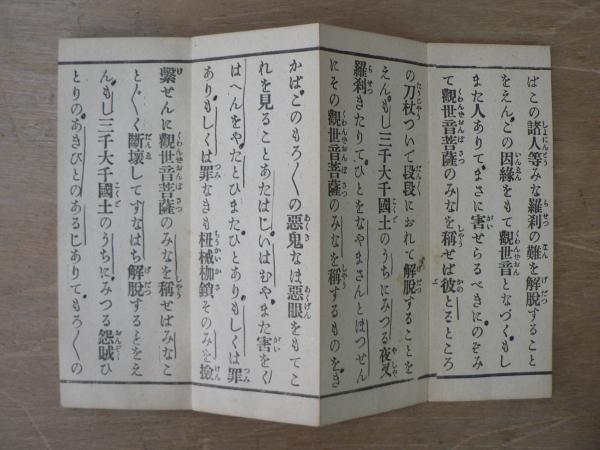 ばこの諸人等みな羅刹の難を解脱すること
をえん。この因緣をもて觀世音となづく。もし
また人ありてまさに害せらるべきにのぞみ
て觀世音菩薩のみなを稱せば彼とるところ
の刀杖ついで段段におれて解脱することを
えん。もし三千大千國土のうちにみつる夜叉
羅刹きたりてひとをなやまさんとはつせん
にその觀世音菩薩のみなを稱するものをき
かば。このもろ〱の惡鬼なほ惡眼をもてこ
れを見ることあたはじ。いはむや。また害をく
はへんをや。たとひまたひとありもしくは罪
ありもしくは罪なきも杻械枷鎖そのみを撿
繫せんに觀世音菩薩のみなを稱せばみなこ
と〲く斷壞してすなはち解脱することをえ
ん。もし三千大千國土のうちにみつる怨賊ひ
とりのあきびとのあるじありてもろ〱の